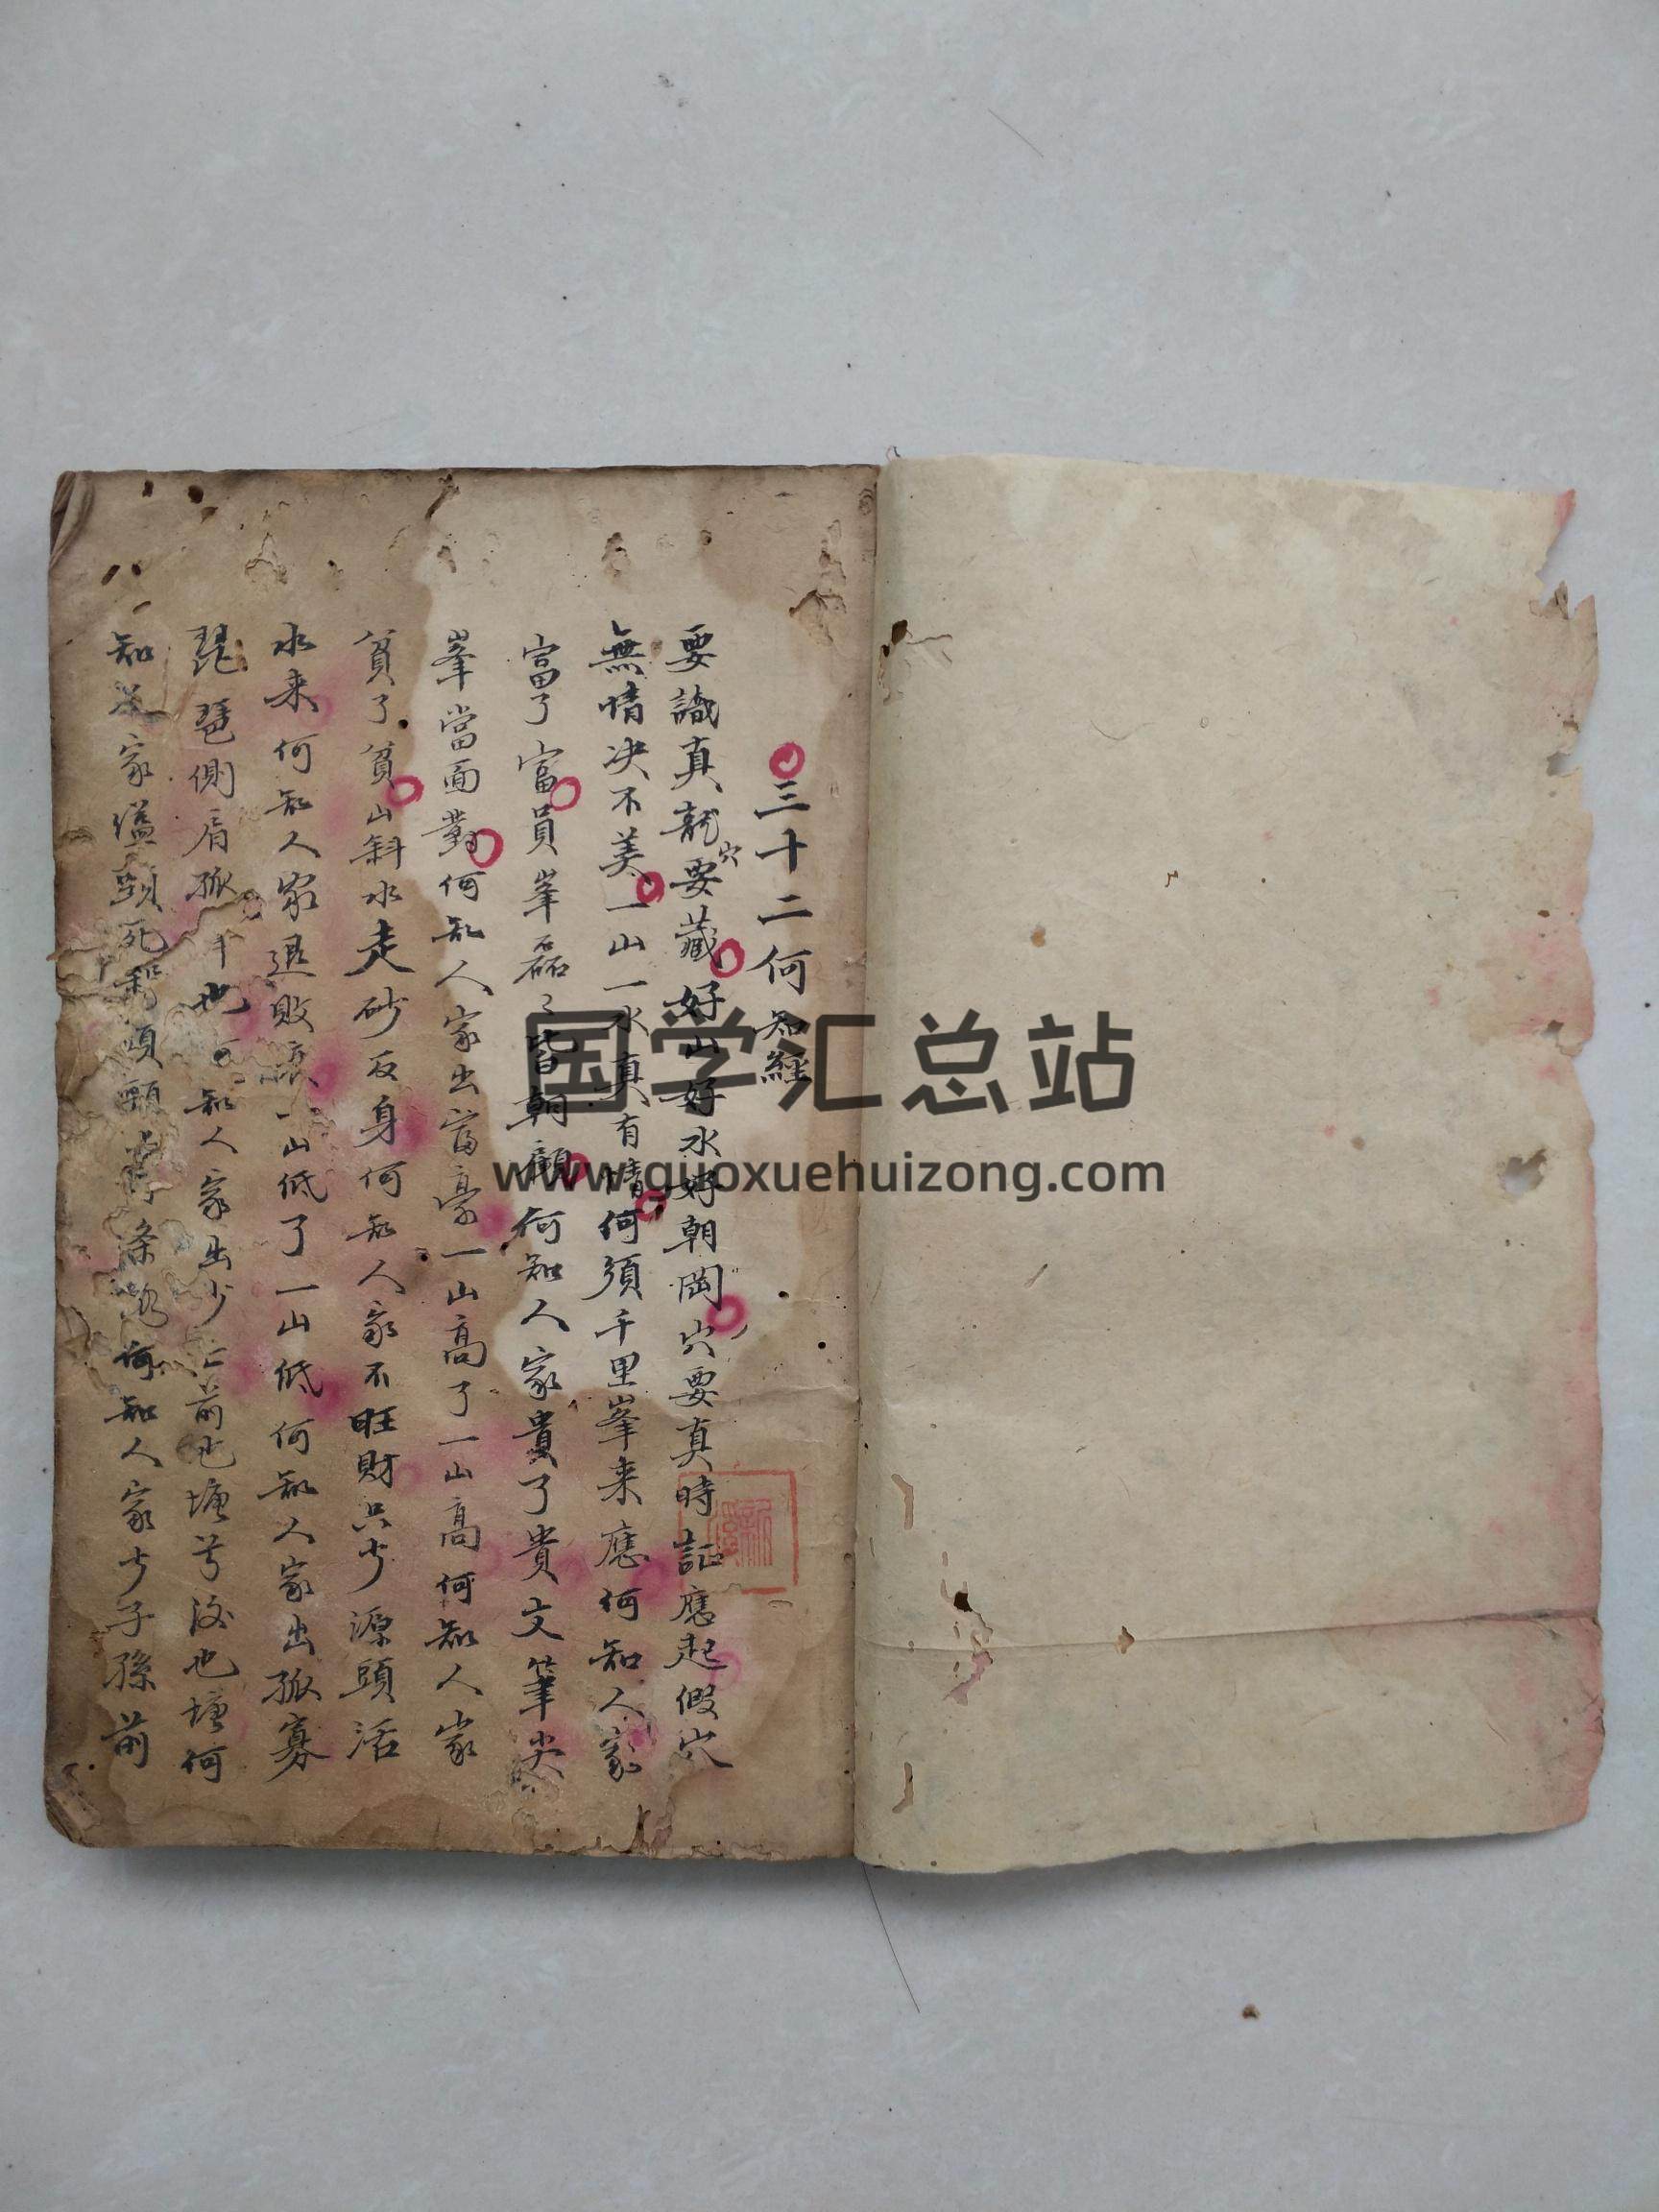 三十二何知經
要識真龍穴要藏好山好水好朝岡穴要真時証應起假穴
無情决不美一山一水真有情何須千里峯来應何知人家
富了富員峯磊々皆朝顧何知人家貴了貴文筆尖
峯當面對何知人家出富豪一山高了一山高何知人家
貧了貧山斜水走砂反身何知人家不旺財只少源頭活
水来何知人家退敗一山低了一山低何知人家出孤寡
琵琶側肩孤也知人家出少亡前也塘兮後也塘何
知家縊頸死頸條何知人家少子孫前
国学汇总站
www.guoxuehuizong.com